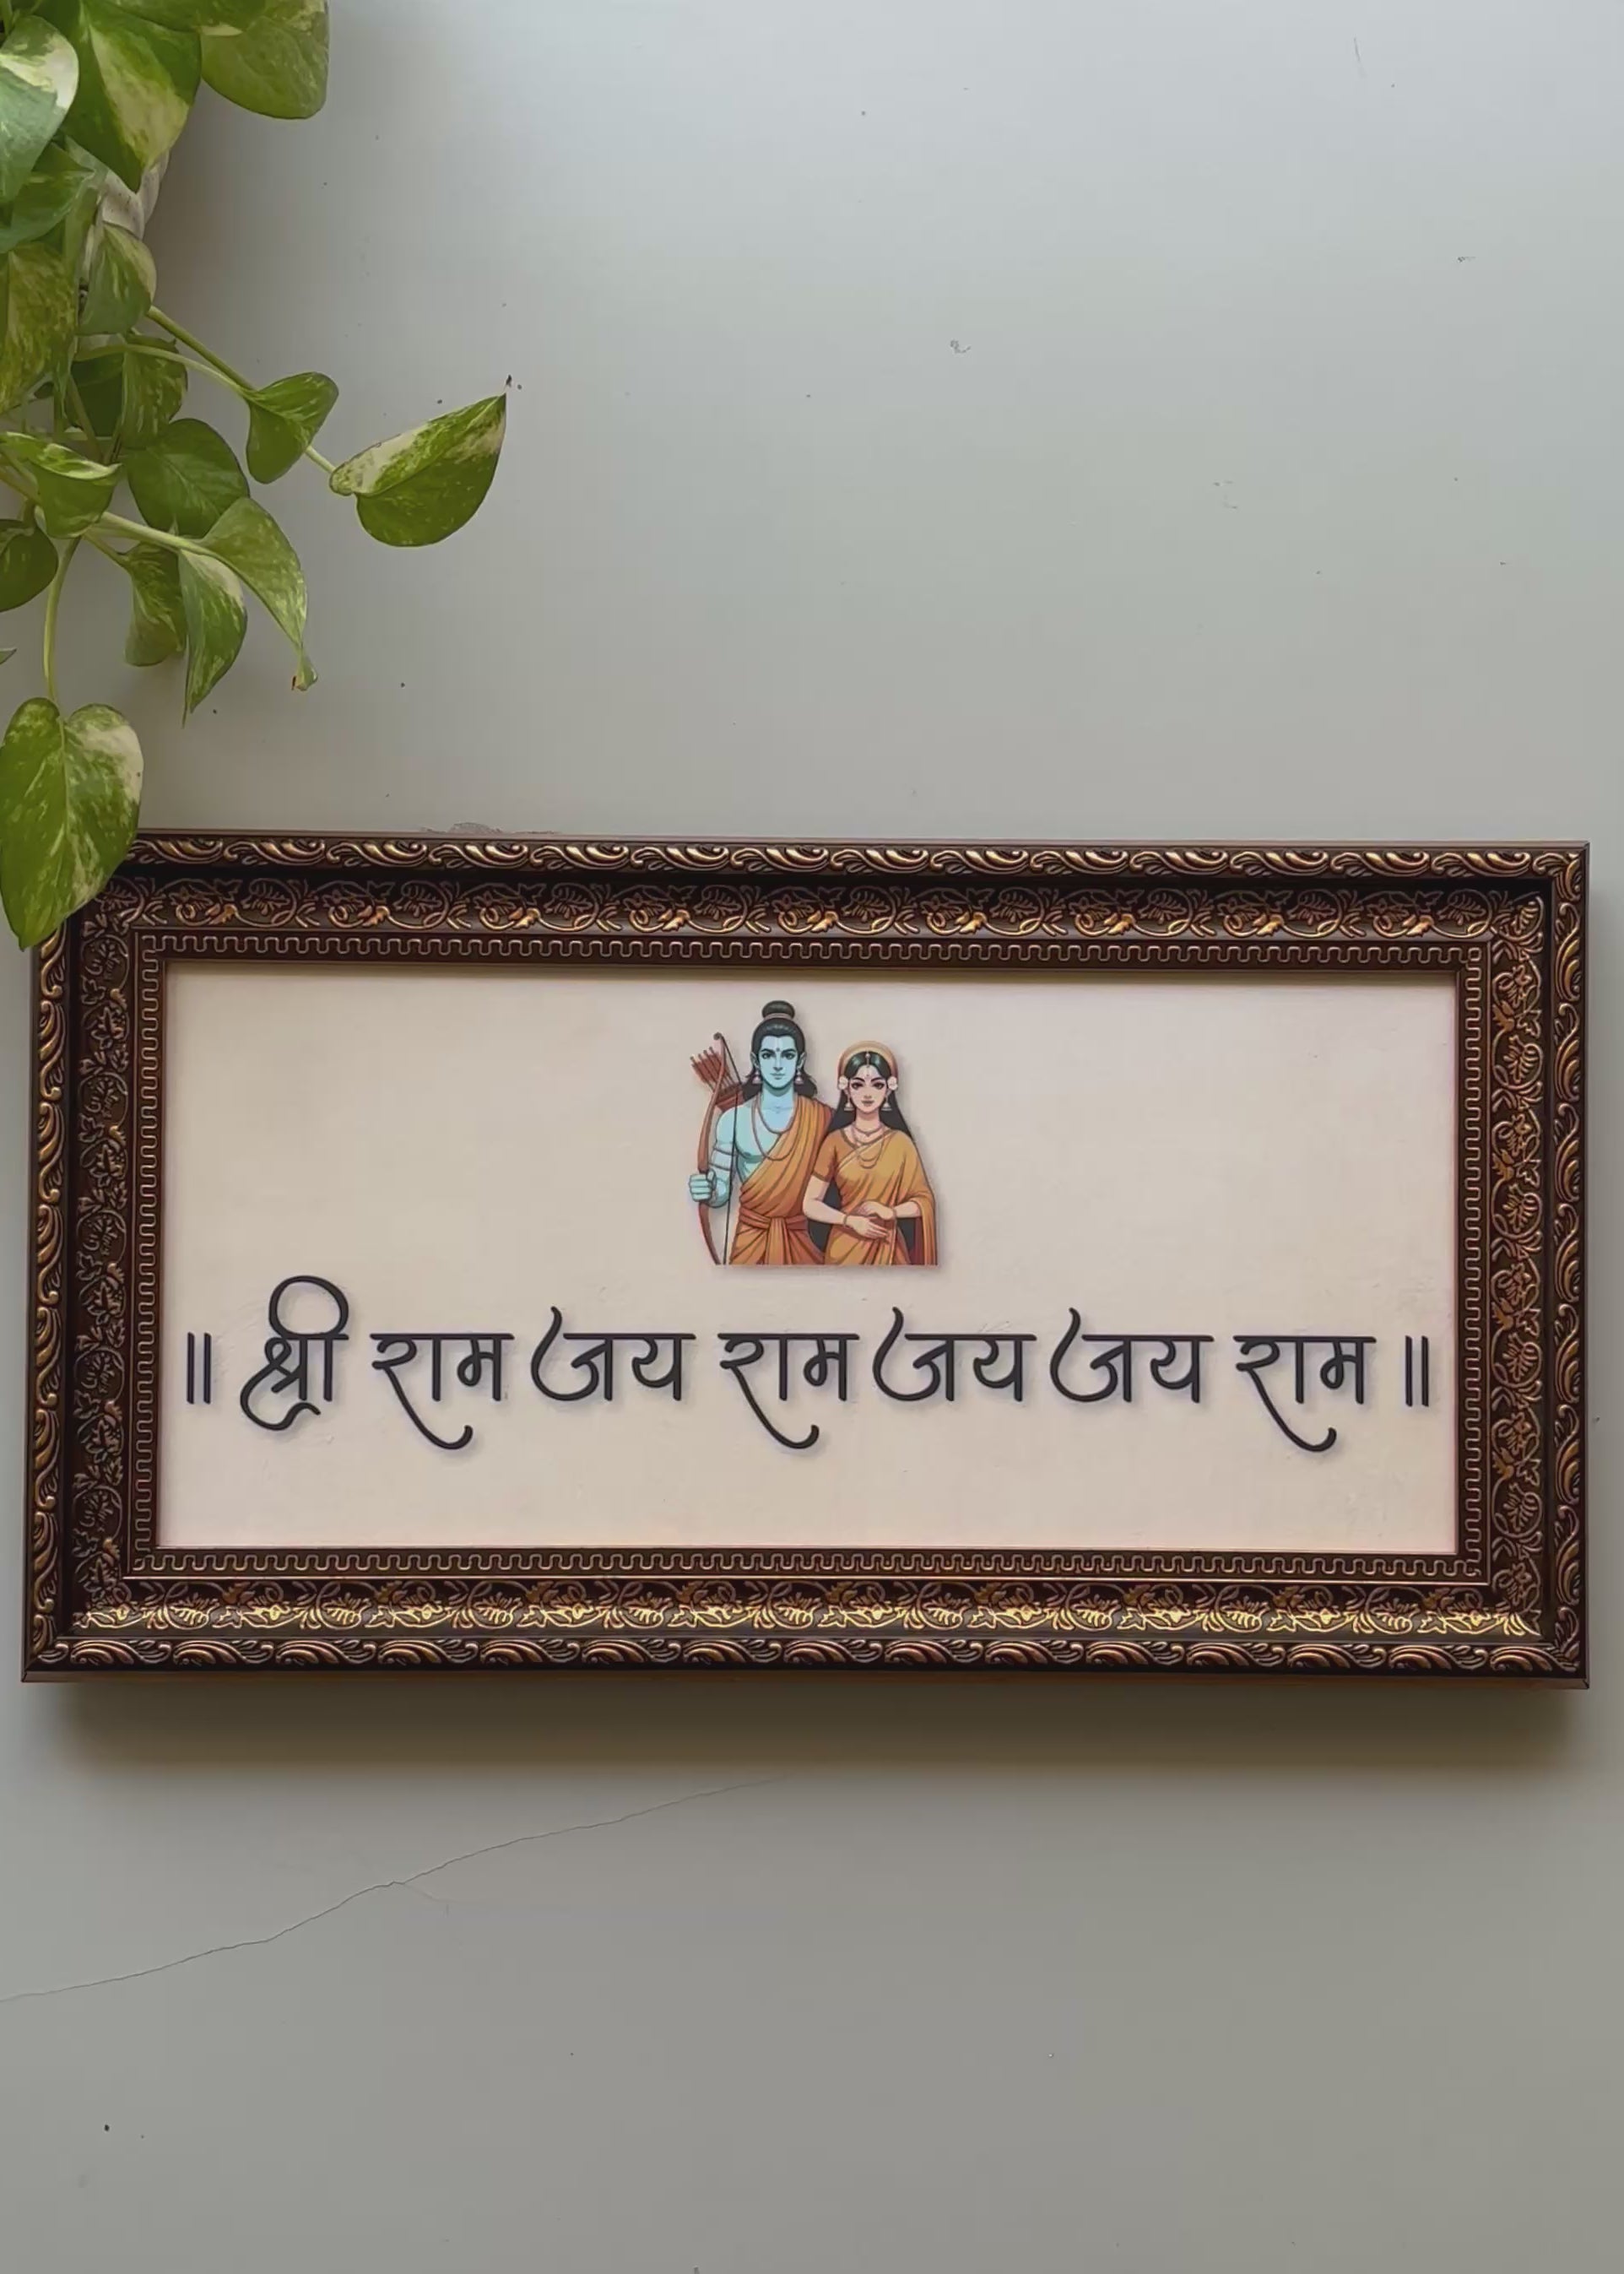 ॥ श्री राम जय राम जय जय राम ॥